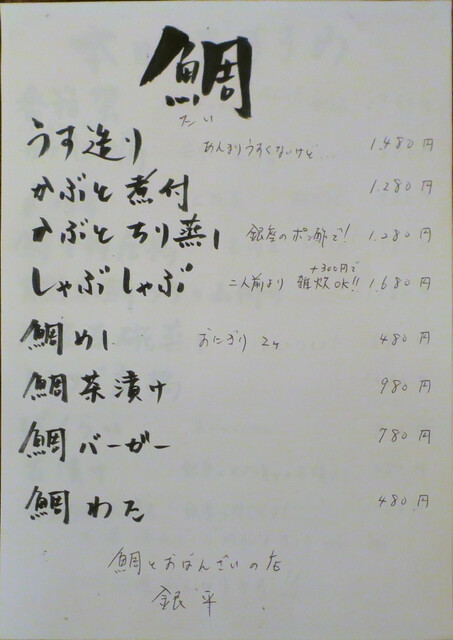 鯛
たい
うす造り あんまりうすくないけど… 1.480円
かぶと煮付 1.280円
かぶとちり蒸し 銀座のポン酢で! 1.280円
しゃぶしゃぶ 二人前より +300円で雑炊OK!! 1.680円
鯛めし おにぎり 2ヶ 480円
鯛茶漬け 980円
鯛バーガー 780円
鯛わた 480円
鯛とおばんざいの店
銀平